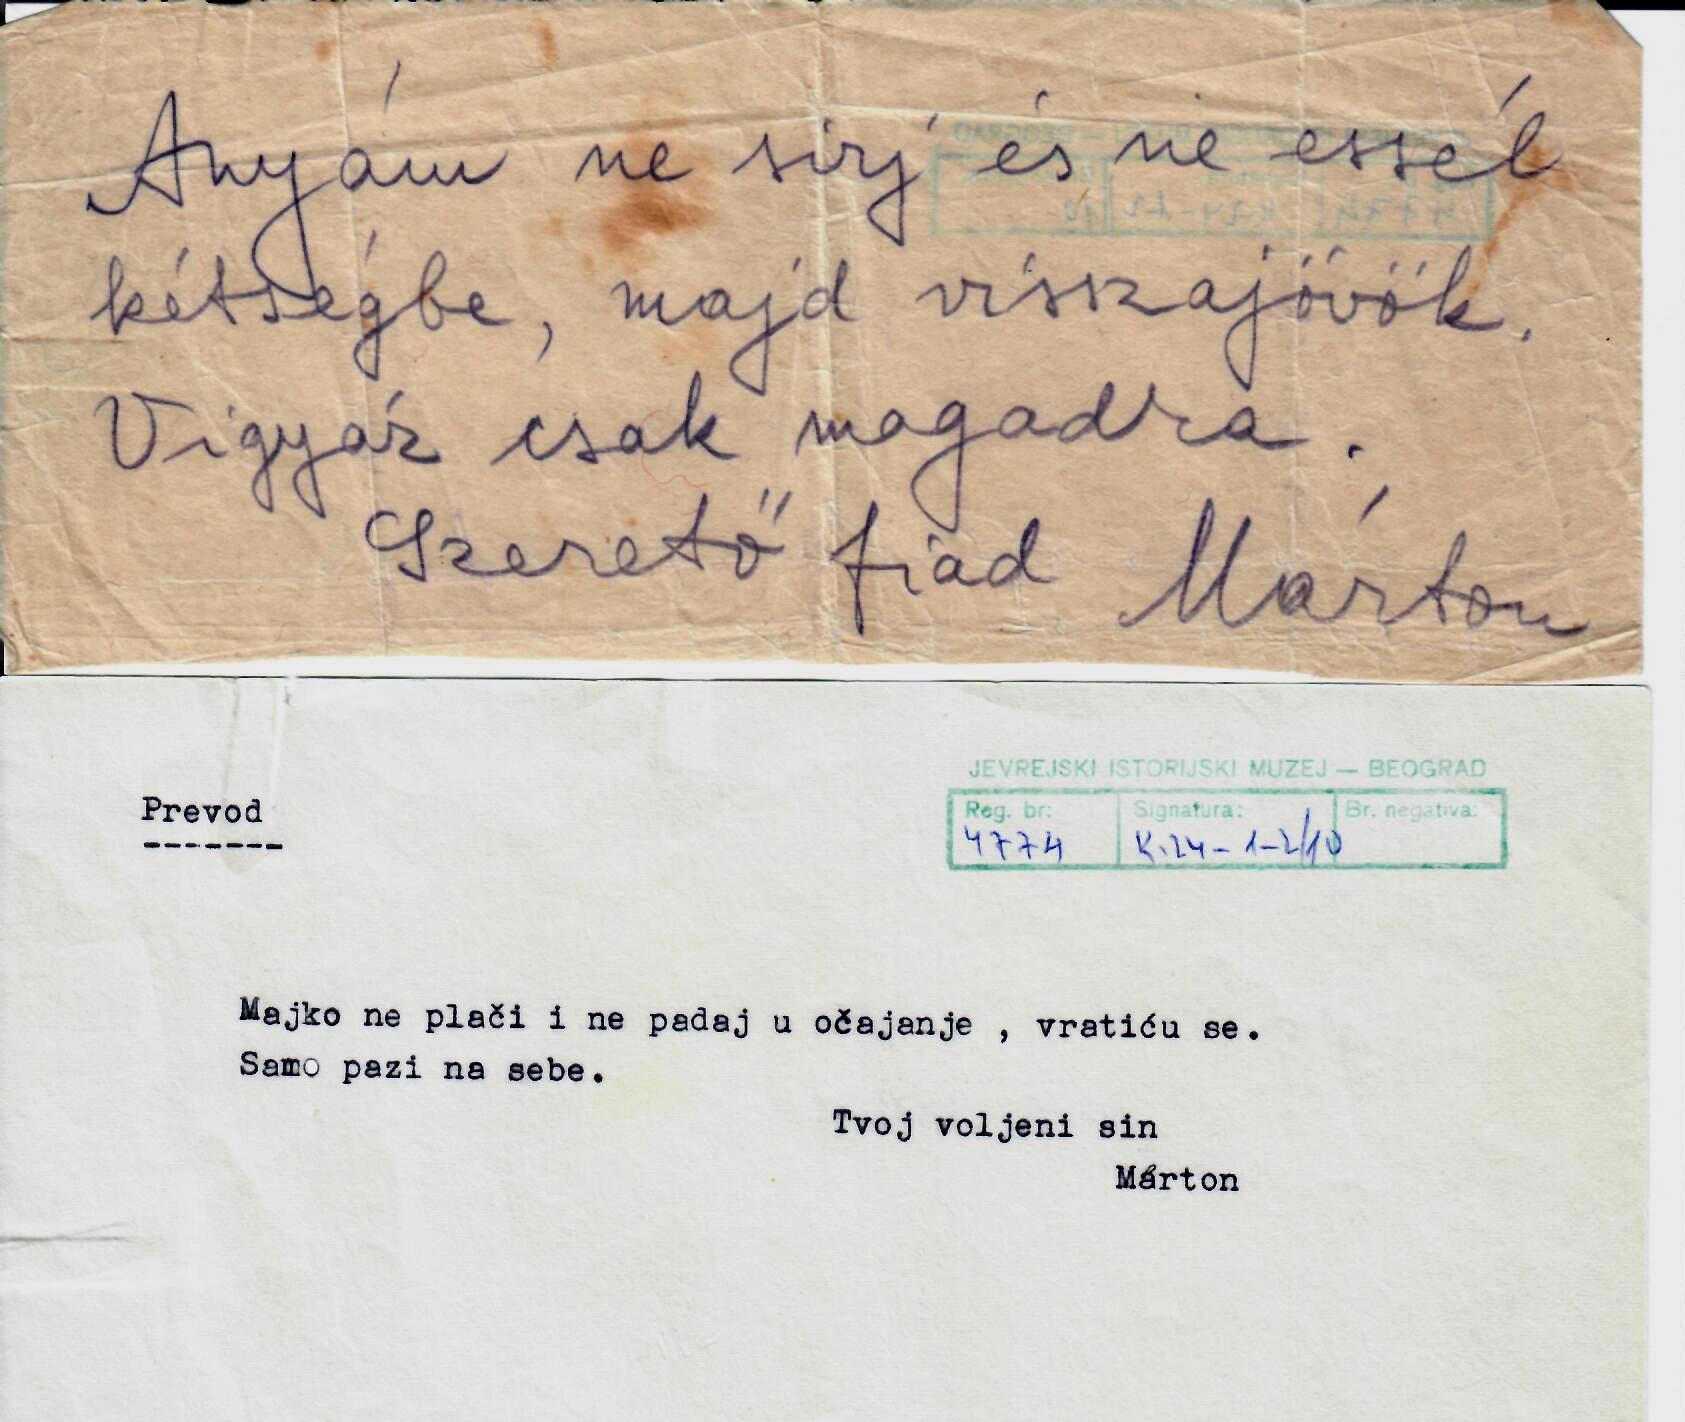 Anyám ne sírj és ne essél
kétségbe, majd visszajövök.
Vigyáz csak magadra.
Szerető fiad Márton
JEVREJSKI ISTORIJSKI MUZEJ — BEOGRAD
Reg. br: Signatura: Br. negativa:
4774 K.24-1-2/10
Prevod
-------
Majko ne plači i ne padaj u očajanje , vratiću se.
Samo pazi na sebe.
Tvoj voljeni sin
Márton